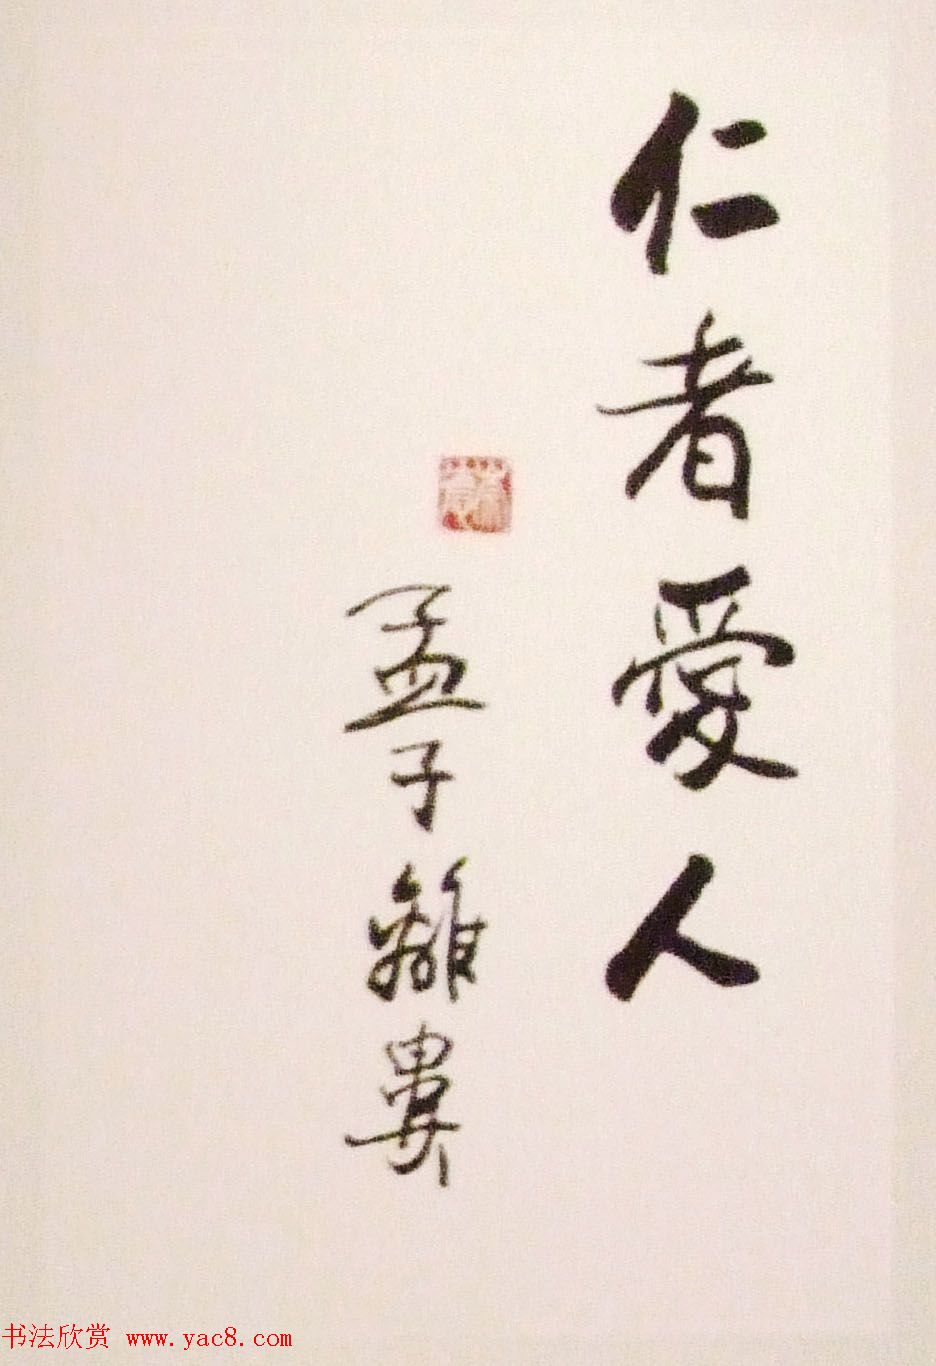 仁者愛人
孟子離婁
书法欣赏 www.yac8.com